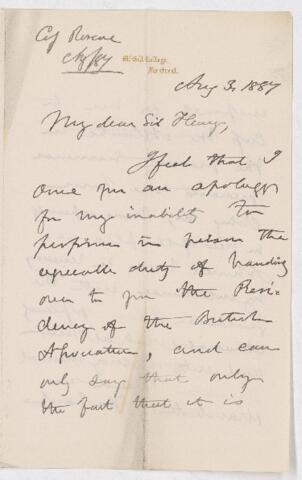 Roscoe
McGill College,
Montreal.
Aug 3, 1887
My dear Sir Henry,
I feel that I
owe you an apology
for my inability to
perform in person the
agreeable duty of handing
over to you the Presi-
dency of the British
Association, and can
only say that only
the fact that it is